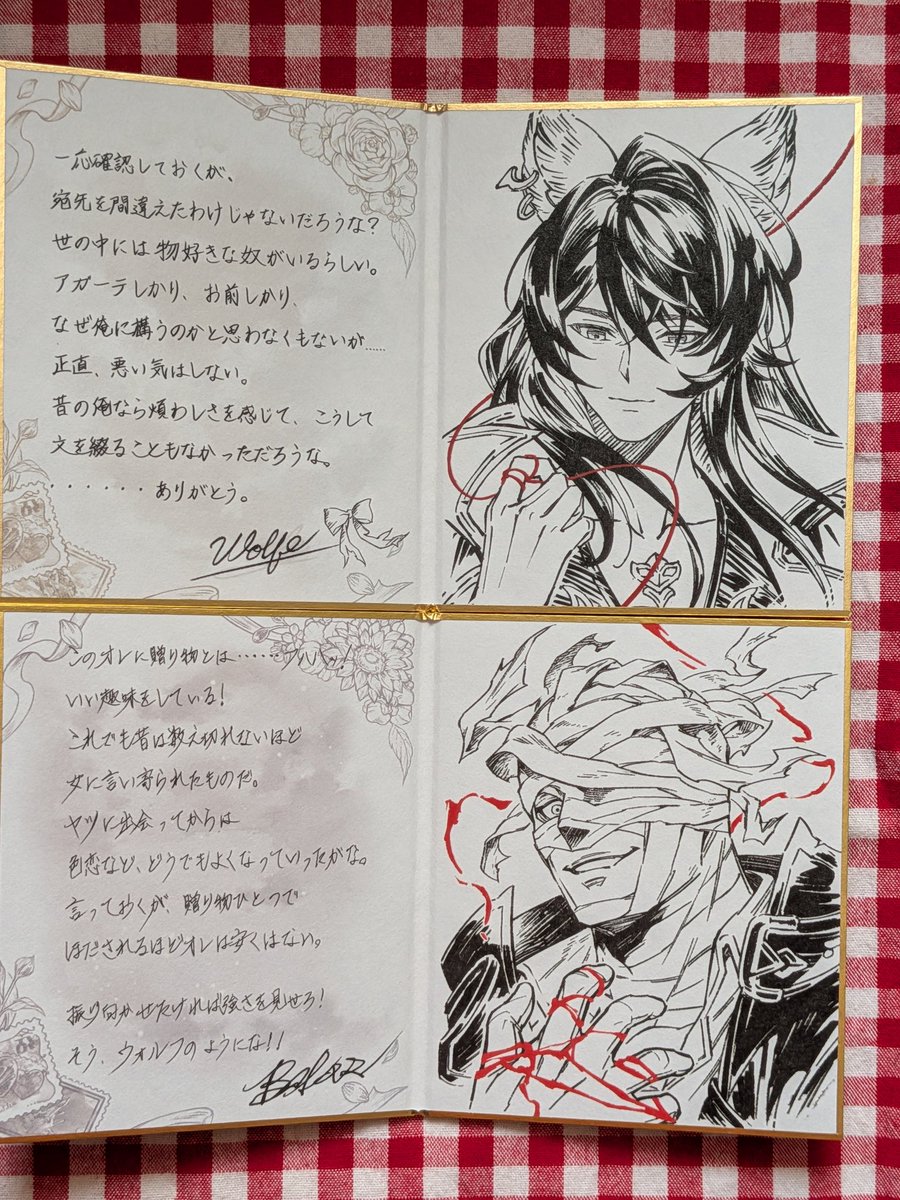 一応確認しておくが、
宛先を間違えたわけじゃないだろうな?
世の中には物好きな奴がいるらしい。
アガーテしかり、お前しかり、
なぜ俺に構うのかと思わなくもないが……
正直、悪い気はしない。
昔の俺なら煩わしさを感じて、こうして
文を綴ることもなかっただろうな。
・・・・・・ありがとう。
Wolfe
このオレに贈り物とは・・・・・・フハハッ!
いい趣味をしている!
これでも昔は数え切れないほど
女に言い寄られたものだ。
ヤツに出会ってからは
色恋など、どうでもよくなっていったがな。
言っておくが、贈り物ひとつで
ほだされるほどオレは安くはない。
振り向かせたければ強さを見せろ!
そう、ウォルフのようにな!!